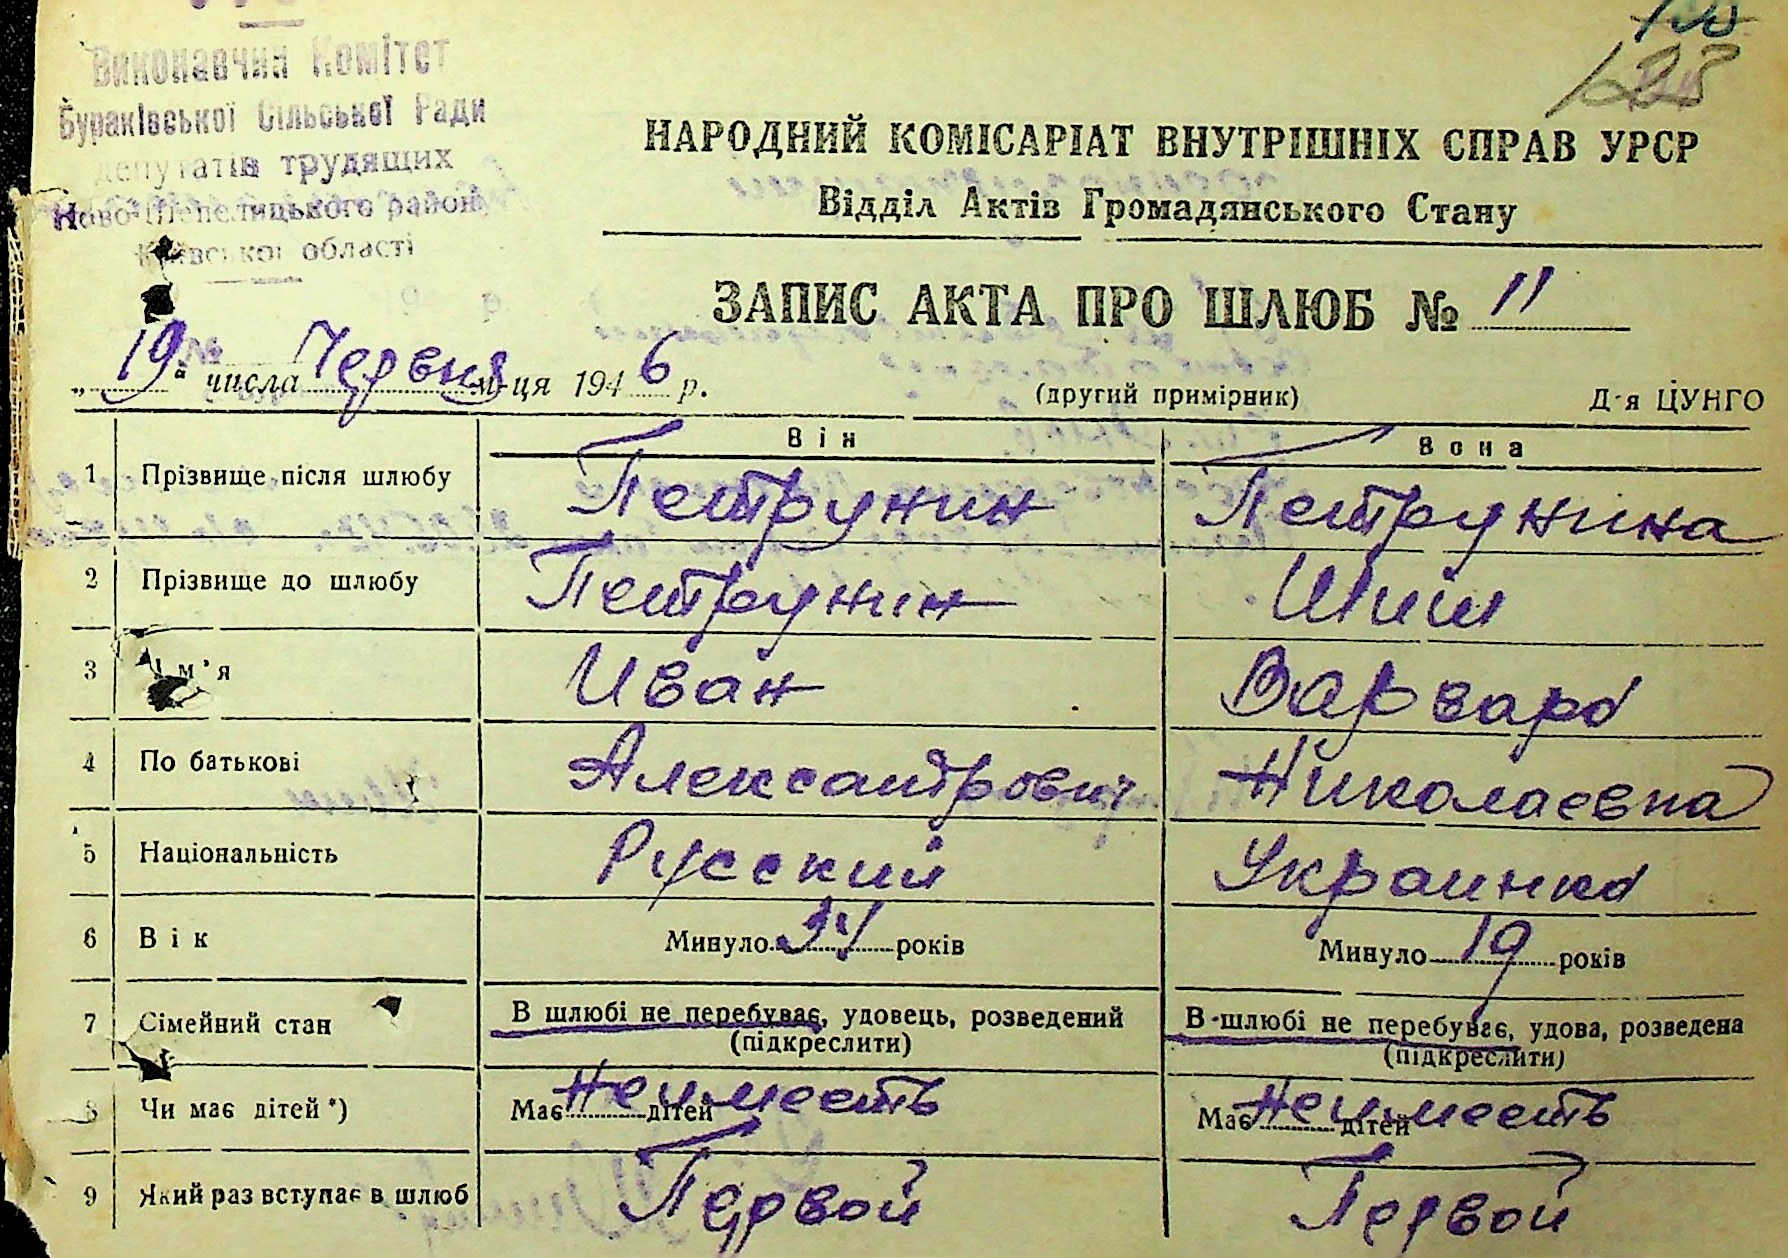 Виконавчий Комітет
Бураківської Сільської Ради
депутатів трудящих
Ново-Шепелицького району
Київської області
123
НАРОДНИЙ КОМІСАРІАТ ВНУТРІШНІХ СПРАВ УРСР
Відділ Актів Громадянського Стану
ЗАПИС АКТА ПРО ШЛЮБ № 11
„19" числа Червня м-ця 1946 р. (другий примірник) Д-я ЦУНГО
Він Вона
1 Прізвище після шлюбу Петрунин Петрунина
2 Прізвище до шлюбу Петрунин Шиш
3 Ім'я Иван Варвара
4 По батькові Александрович Николаевна
5 Національність Русский Украинка
6 Вік Минуло 34 років Минуло 19 років
7 Сімейний стан В шлюбі не перебуває, удовець, розведений В шлюбі не перебуває, удова, розведена
(підкреслити) (підкреслити)
8 Чи має дітей*) Має Неимееть дітей Має Неимееть дітей
9 Який раз вступає в шлюб Первой Первой